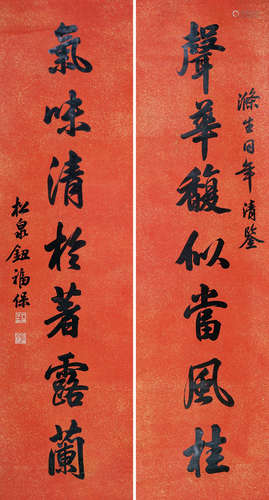 滌生同年清鉴
聲華馥似當風桂
氣味清於著露蘭
松泉鈕福保